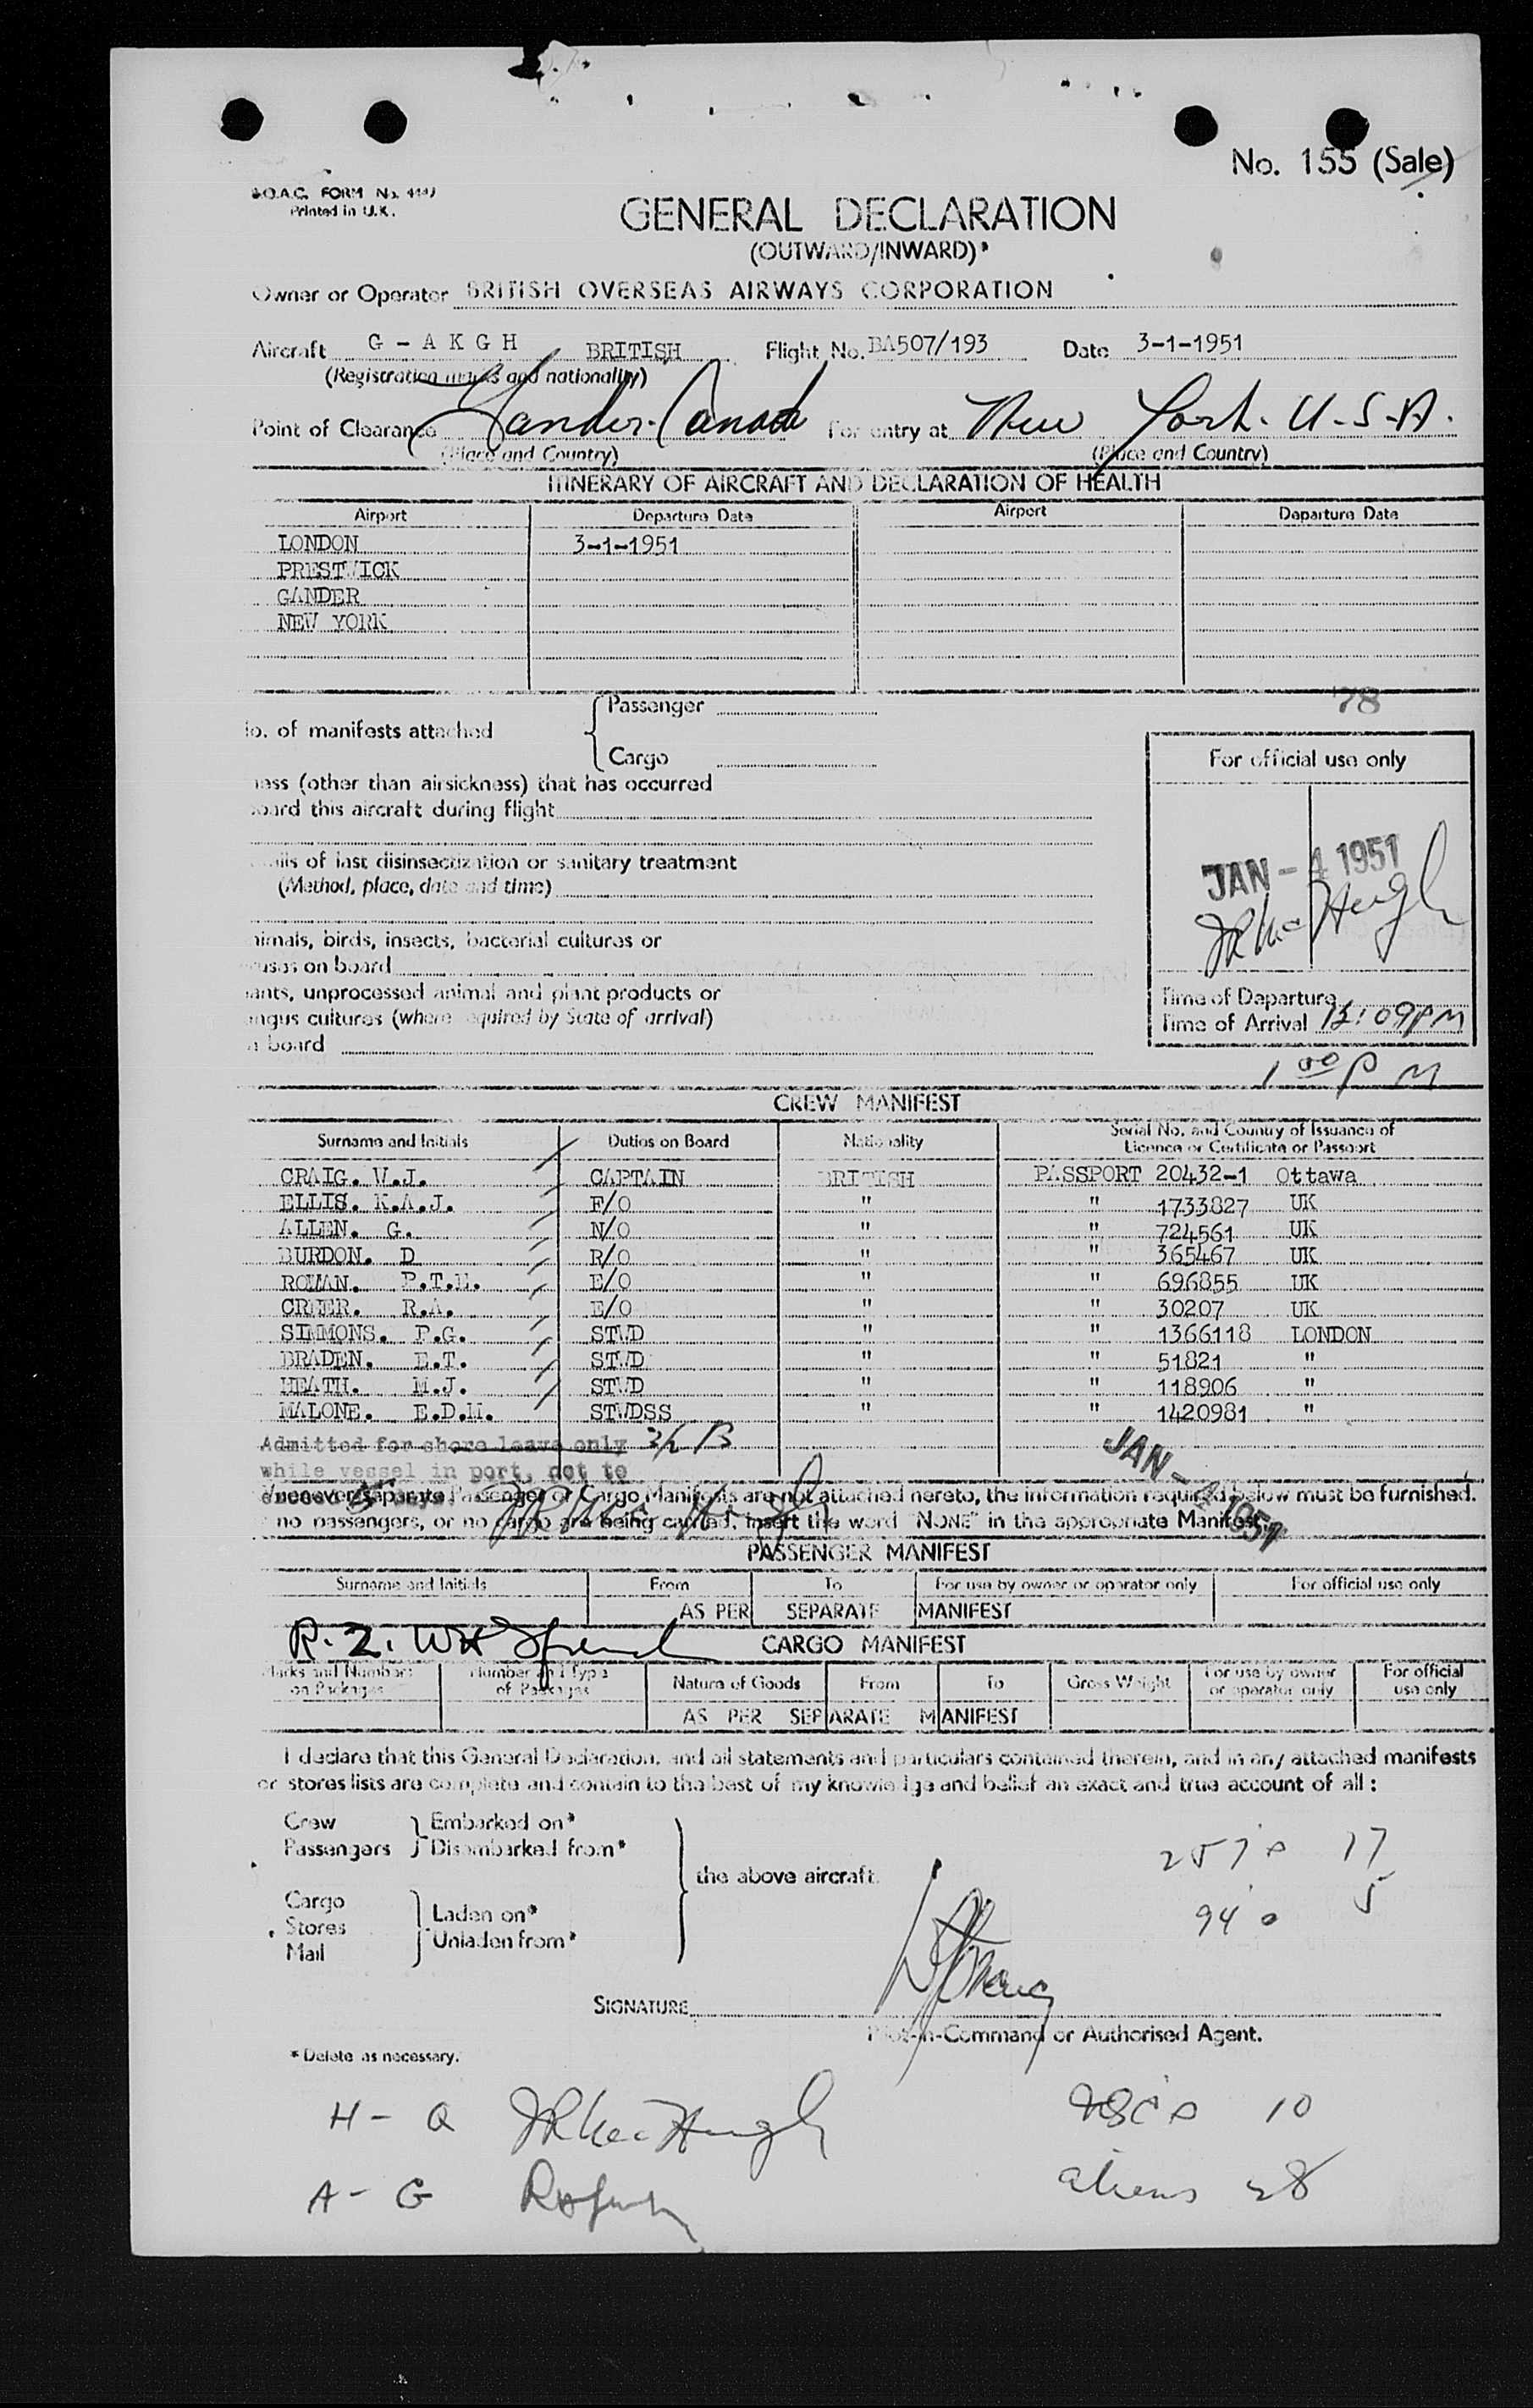 No. 155 (Sale)
B.O.A.C. FORM No.
Printed in U.K.
GENERAL DECLARATION
(OUTWARD/INWARD)*
Owner or Operator BRITISH OVERSEAS AIRWAYS CORPORATION
Aircraft G - A K G H BRITISH Flight No. BA507/193 Date 3-1-1951
(Registration marks and nationality)
Point of Clearance Gander. Canada For entry at New York. U-S-A.
(Place and Country) (Place and Country)
ITINERARY OF AIRCRAFT AND DECLARATION OF HEALTH
Airport Departure Date Airport Departure Date
LONDON 3-1-1951
PRESTWICK
GANDER
NEW YORK
78
Passenger
o. of manifests attached
Cargo
For official use only
ness (other than airsickness) that has occurred
oard this aircraft during flight
ails of last disinsectization or sanitary treatment
(Method, place, date and time)
JAN - 4 1951
nimals, birds, insects, bacterial cultures or
uses on board
ants, unprocessed animal and plant products or
ungus cultures (where required by State of arrival)
n board
Time of Departure
Time of Arrival 12:09PM
1 00 P M
CREW MANIFEST
Surname and Initials Duties on Board Nationality Serial No. and Country of Issuance of Licence or Certificate or Passport
CRAIG. W.J. CAPTAIN BRITISH PASSPORT 20432-1 Ottawa
ELLIS. K.A.J. F/O " " 1733827 UK
ALLEN. G. N/O " " 724561 UK
BURDON. D R/O " " 365467 UK
ROWAN. P.T.E. E/O " " 696855 UK
CREER. R.A. E/O " " 30207 UK
SIMMONS. P.G. STWD " " 1366118 LONDON
BRADEN. E.T. STWD " " 51821 "
HEATH. M.J. STWD " " 118906 "
MALONE. E.D.M. STWDSS " " 1420981 "
Admitted for shore leave only
while vessel in port, not to
exceed days.
JAN - 4 1951
Whenever separate Passenger or Cargo Manifests are not attached hereto, the information required below must be furnished.
no passengers, or no cargo are being carried, insert the word "NONE" in the appropriate Manifest.
PASSENGER MANIFEST
Surname and Initials From To For use by owner or operator only For official use only
AS PER SEPARATE MANIFEST
CARGO MANIFEST
Marks and Numbers on Packages Number and Type of Packages Nature of Goods From To Gross Weight For use by owner or operator only For official use only
AS PER SEPARATE MANIFEST
I declare that this General Declaration, and all statements and particulars contained therein, and in any attached manifests
or stores lists are complete and contain to the best of my knowledge and belief an exact and true account of all :
Crew Embarked on*
Passengers Disembarked from*
the above aircraft.
17
Cargo
Stores Laden on*
Mail Unladen from*
5
SIGNATURE
Pilot-in-Command or Authorised Agent.
* Delete as necessary.
H - Q
USC's 10
A - G
aliens 28